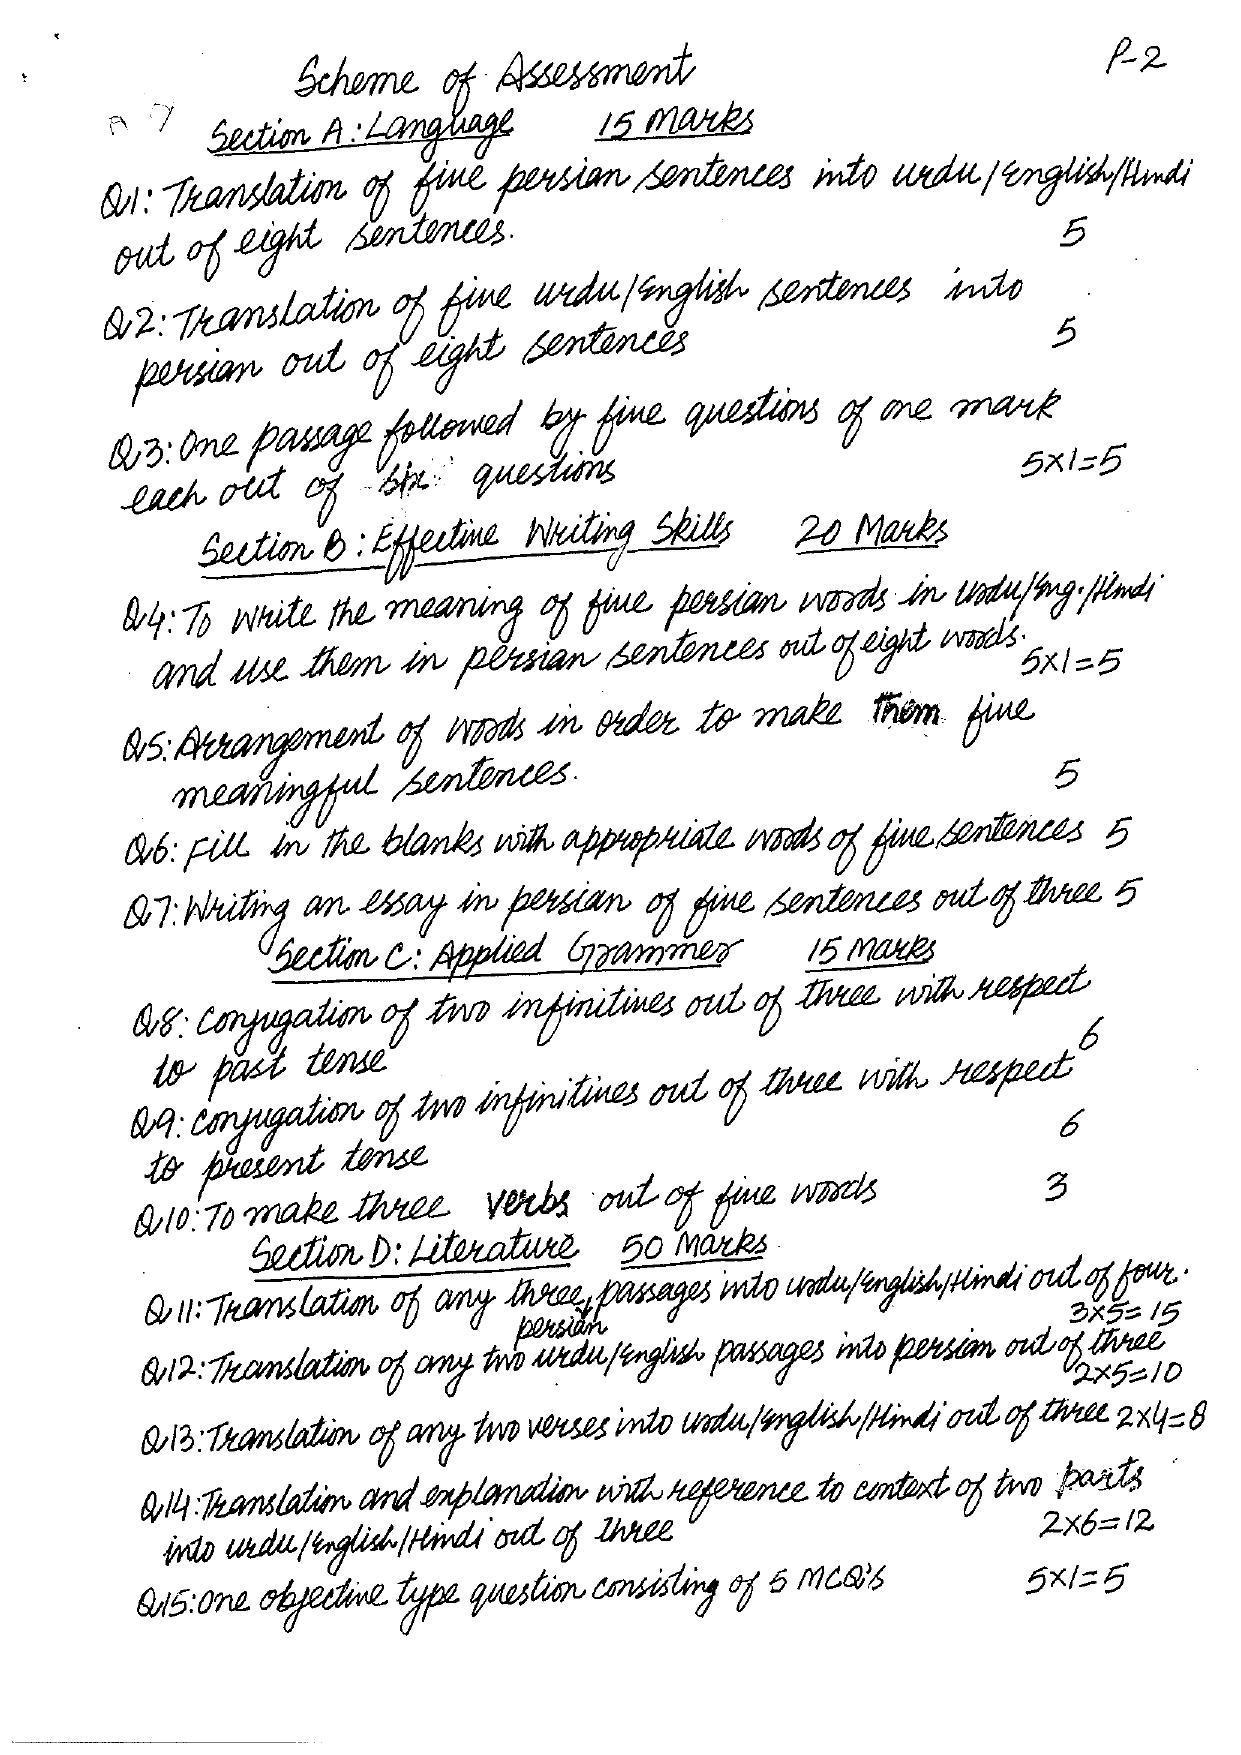 P-2
Scheme of Assessment
Section A: Language 15 Marks
Q1: Translation of five persian sentences into urdu/English/Hindi
out of eight sentences. 5
Q2: Translation of five urdu/English sentences into
persian out of eight sentences 5
Q3: One passage followed by five questions of one mark
each out of six questions 5x1=5
Section B: Effective Writing Skills 20 Marks
Q4: To write the meaning of five persian words in urdu/Eng./Hindi
and use them in persian sentences out of eight words. 5x1=5
Q5: Arrangement of words in order to make them five
meaningful sentences. 5
Q6: Fill in the blanks with appropriate words of five sentences 5
Q7: Writing an essay in persian of five sentences out of three 5
Section C: Applied Grammer 15 Marks
Q8: Conjugation of two infinitives out of three with respect
to past tense 6
Q9: Conjugation of two infinitives out of three with respect
to present tense 6
Q10: To make three verbs out of five words 3
Section D: Literature 50 Marks
Q11: Translation of any three persian passages into urdu/English/Hindi out of four.
3x5=15
Q12: Translation of any two urdu/English passages into persian out of three
2x5=10
Q13: Translation of any two verses into urdu/English/Hindi out of three 2x4=8
Q14: Translation and explanation with reference to context of two parts
into urdu/English/Hindi out of three 2x6=12
Q15: One objective type question consisting of 5 MCQ's 5x1=5